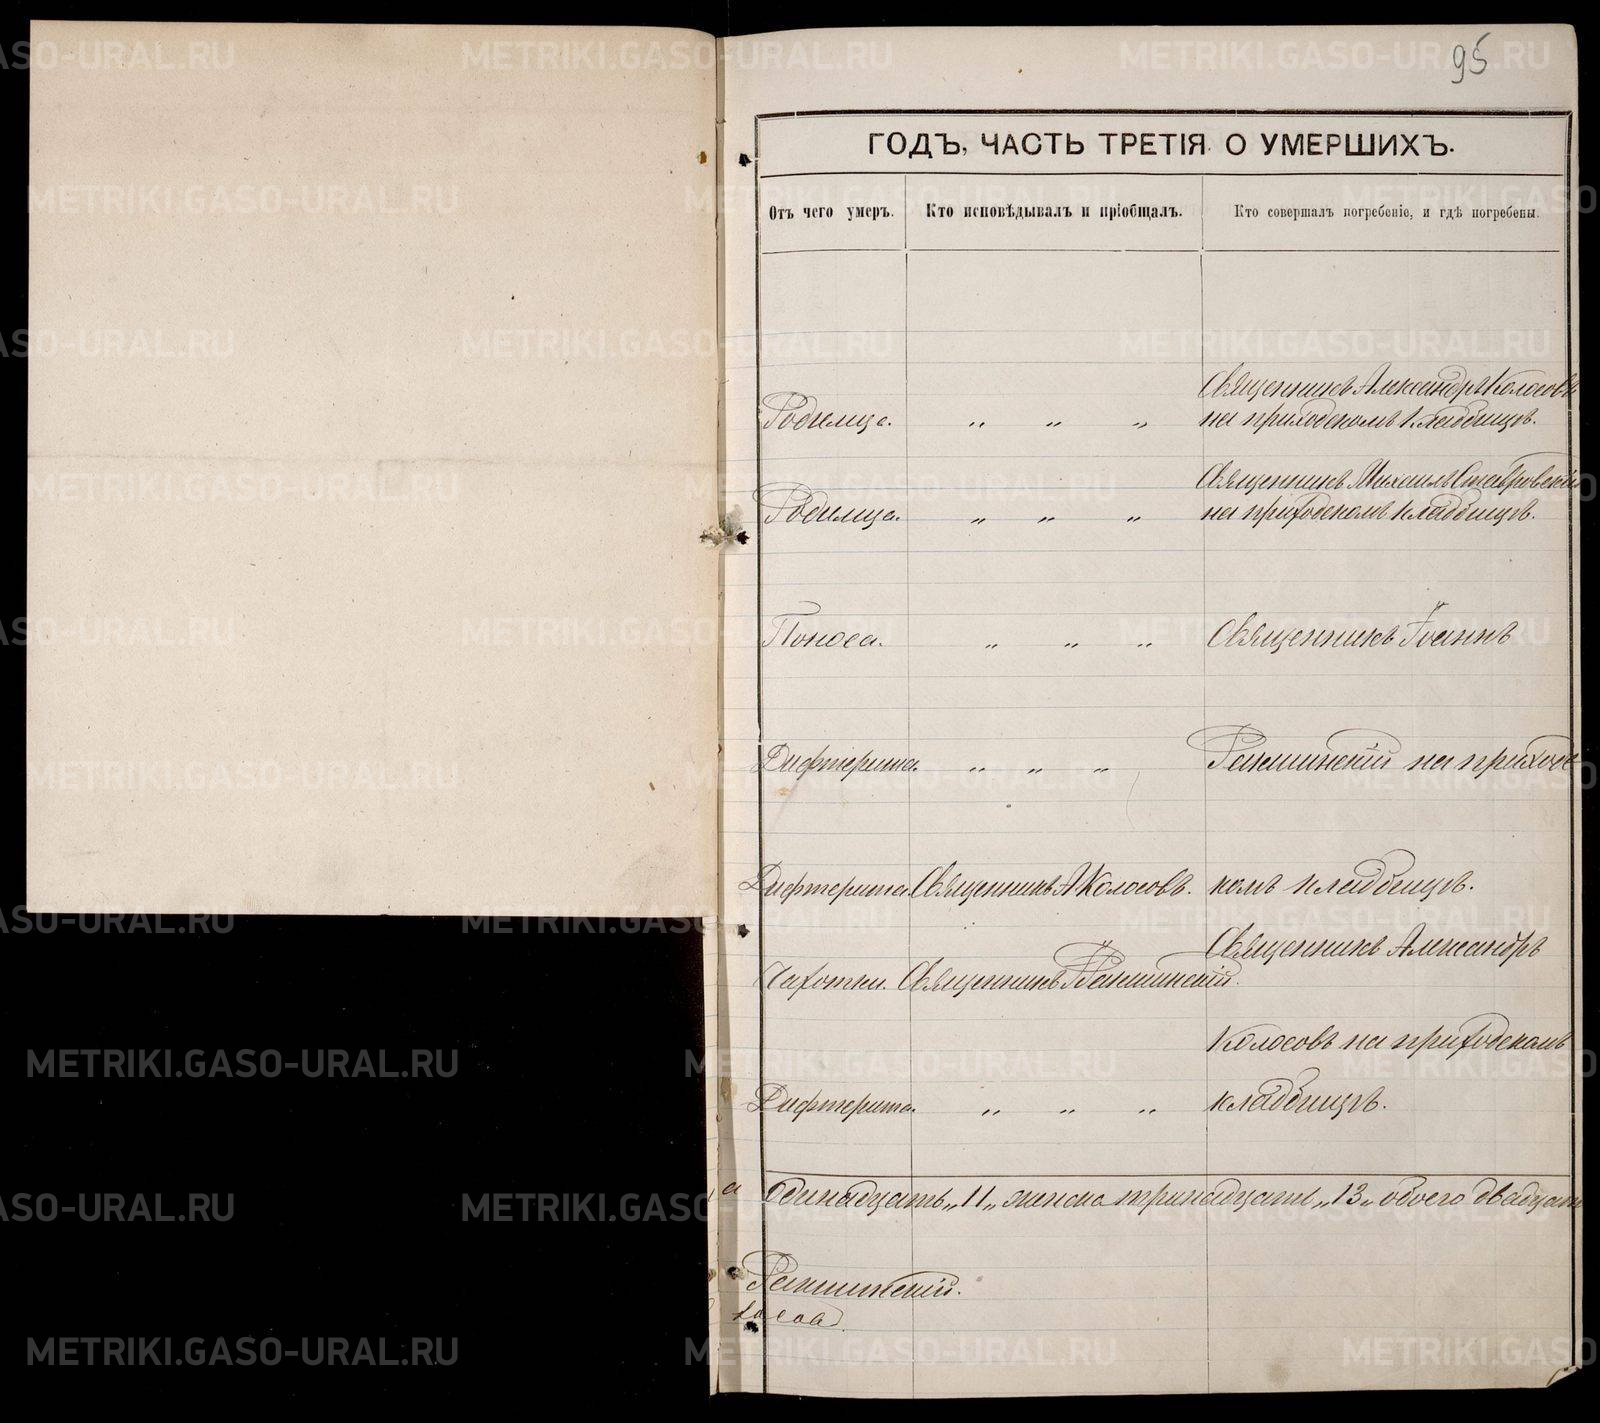 95
ГОДЪ, ЧАСТЬ ТРЕТІЯ О УМЕРШИХЪ.
Отъ чего умеръ. Кто исповѣдывалъ и пріобщалъ. Кто совершалъ погребеніе, и гдѣ погребены.
Священникъ Александръ Колосовъ
Родимца. „ „ „ на приходскомъ кладбищѣ.
Священникъ Михаилъ
Родимца. „ „ „ на приходскомъ кладбищѣ.
Поноса. „ „ „ Священникъ Іоаннъ
Дифтерита. „ „ „ Ракшинскій на приходс
Дифтерита. Священникъ А Колосовъ. комъ кладбищѣ.
Священникъ Александръ
Чахотки. Священникъ І Ракшинскій.
Колосовъ на приходскомъ
Дифтерита. „ „ „ кладбищѣ.
а Одинадцать „11„ женска тринадцать „13„ обоего двадцать
Ракшинскій.
лосов
METRIKI.GASO-URAL.RU